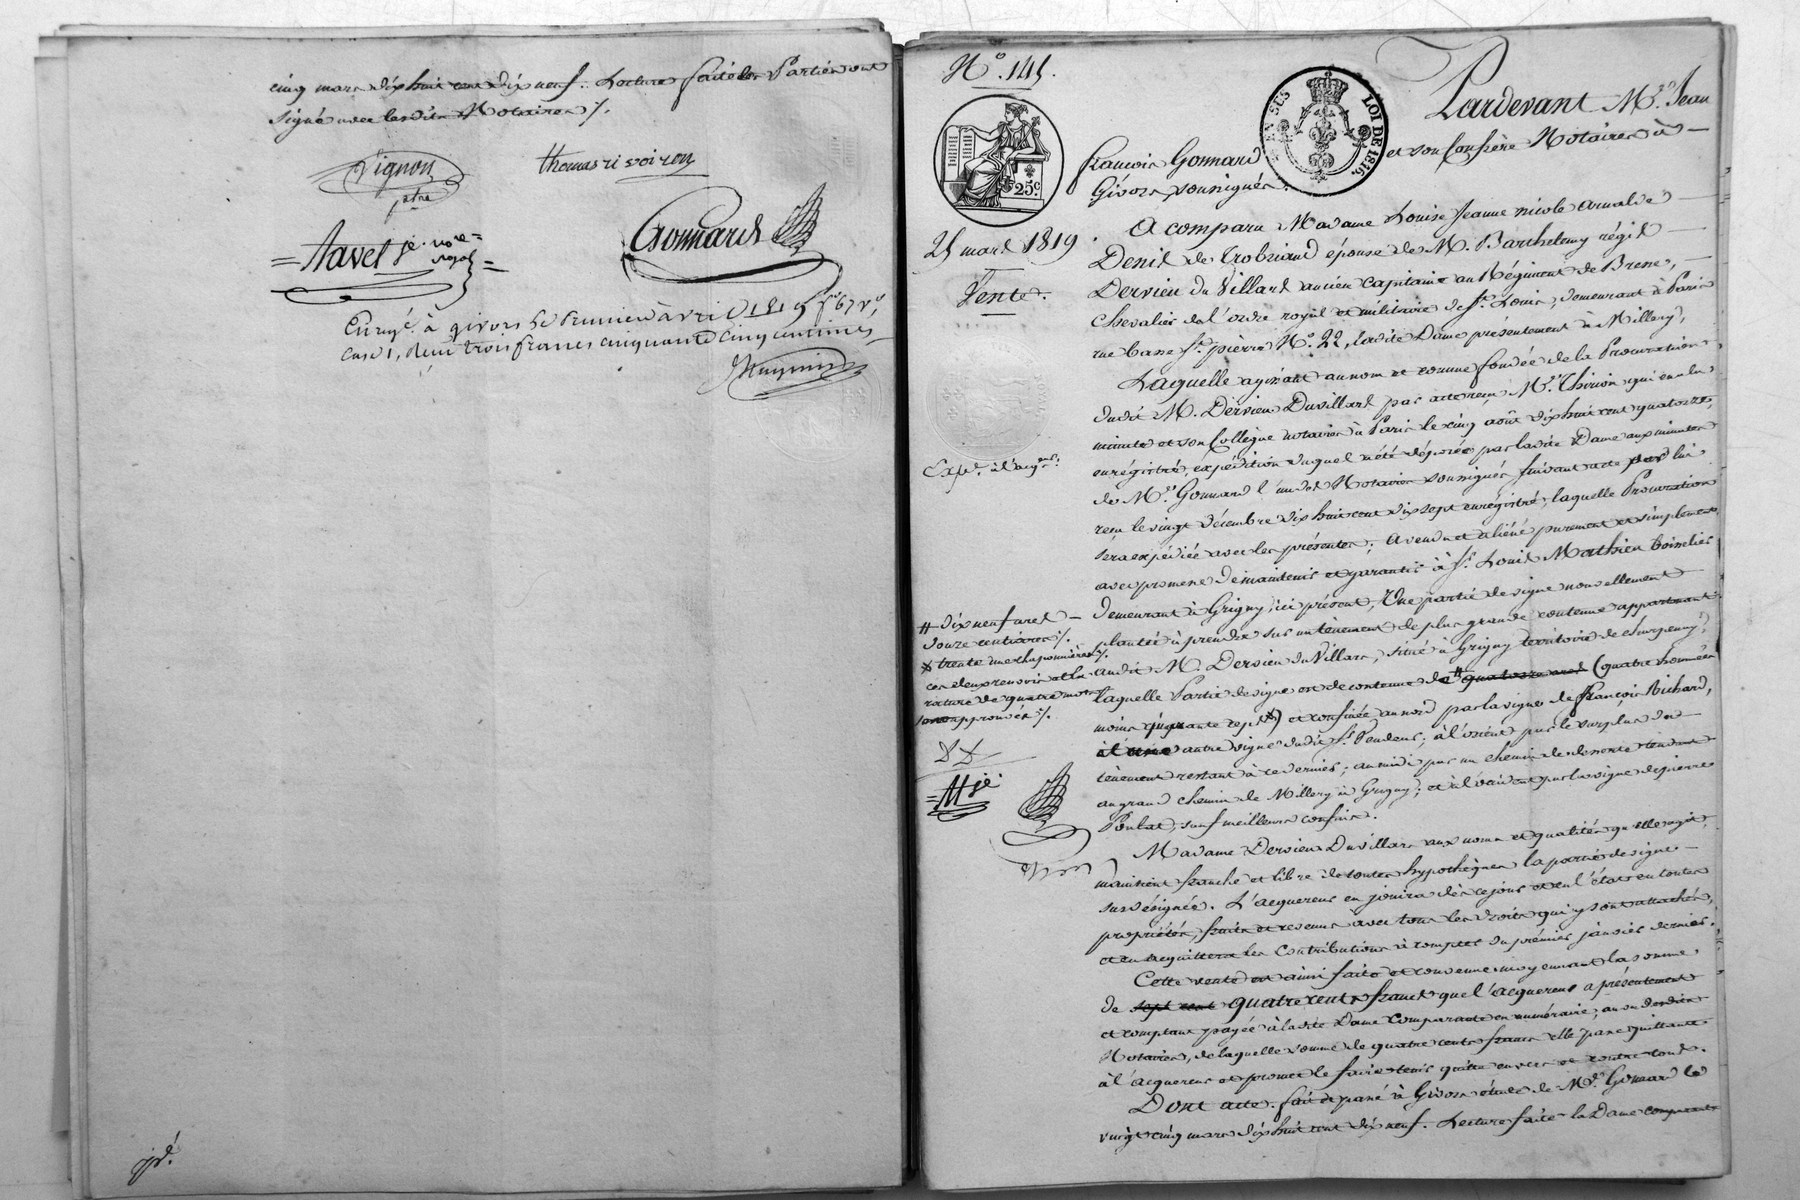 cinq mars dix huit cent dix neuf. Lecture faite les Parties ont
signé avec lesdits Notaires ./.
Vignon
ptre
thomas rivoiron
Gonnard
= Navel je. nore =
royal
Enregé. à givors le premier avril 1819 fo 67 vo,
case 1, reçu trois francs cinquante cinq centimes
No. 145.
25 c
EN SUS
LOI DE 1816.
Pardevant Me. Jean
françois Gonnard et son Confrère Notaires à
Givors soussignés.
25 mars 1819.
Vente.
A comparu Madame Louise Jeanne nicole arnalde
Denis de Trobriand épouse de M. Barthelemy régis
Dervieu du Villars ancien Capitaine au Régiment de Bresse,
Chevalier de l'ordre royal et militaire de St. Louis, demeurant à Paris
rue basse St. pierre No. 22, ladite Dame présentement à Millery,
Laquelle agissant au nom et comme fondée de la Procuration
dudit M. Dervieu Duvillars par acte reçu Me. Thirion qui en a la
minute et son Collègue notaires à Paris le cinq août dix huit cent quatorze,
enregistré, expédition duquel a été déposée par ladite Dame aux minutes
Expé. à l'acqr.
de Me. Gonnard l'un des Notaires soussignés suivant acte par lui
reçu le vingt Décembre dix huit cent dix sept enregistré, laquelle Procuration
sera expédiée avec les présentes; a vendu et aliéné purement et simplement
avec promesse de maintenir et garantir à Sr. Louis Mathieu
demeurant à Grigny, ici présent, Une partie de vigne nouvellement
plantée à prendre sur un tènement de plus grande contenue appartenant
audit M. Dervieu du Villars, situé à Grigny territoire de
laquelle Partie de vigne est de contenue de # quatorze ares (quatre hommées
moins cinquante ceps x) et confinée au nord par la vigne de François Richard,
et une autre vigne dudit Sr. Vendeur; à l'orient par le surplus du
tènement restant à ce dernier; au midi par un chemin de desserte tendant
au grand chemin de Millery à Grigny; et à l'occident par la vigne de pierre
Poulat, sauf meilleurs confins.
# dix neuf ares
douze centiares ./.
x trente une chaponnières ./.
ces deux renvois et la
rature de quatre mots
sont approuvés ./.
Madame Dervieu Duvillars aux noms et qualités qu'elle agit,
maintient franche et libre de toutes hypothèques la partie de vigne
sus désignée. L'acquereur en jouira dès ce jour et en l'état en toutes
propriétés, fruits et revenus avec tous les droits qui y sont attachés,
et en acquittera les Contributions à compter du prémier janvier dernier.
Cette vente est ainsi faite et convenue moyennant la somme
de sept cent quatre cents francs que l'acquereur a présentement
et comptant payée à ladite Dame Comparante en numéraire, au vu desdits
Notaires, de laquelle somme de quatre cents francs elle passe quittance
à l'acquereur et promet le faire tenir quitte envers et contre tous.
Dont acte. fait et passé à Givors étude de Me. Gonnard le
vingt cinq mars dix huit cent dix neuf. Lecture faite la Dame comparante